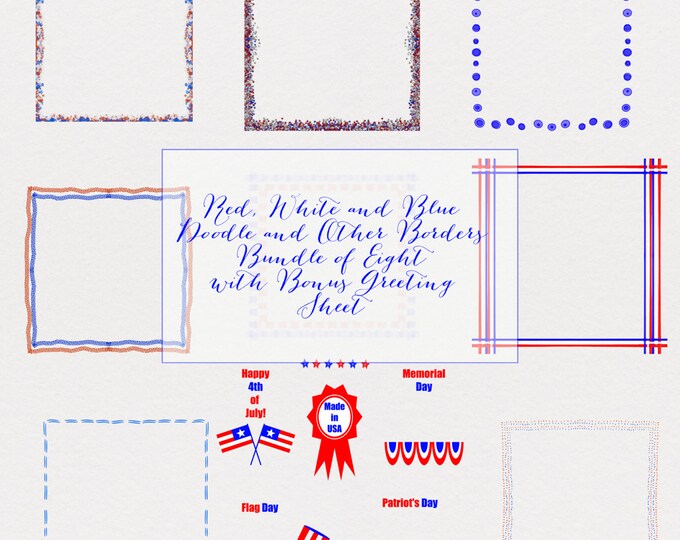 Red, White and Blue
Doodle and Other Borders
Bundle of Eight
with Bonus Greeting
Sheet
Happy
4th
of
July!
Made
in
USA
Memorial
Day
Flag Day
Patriot's Day